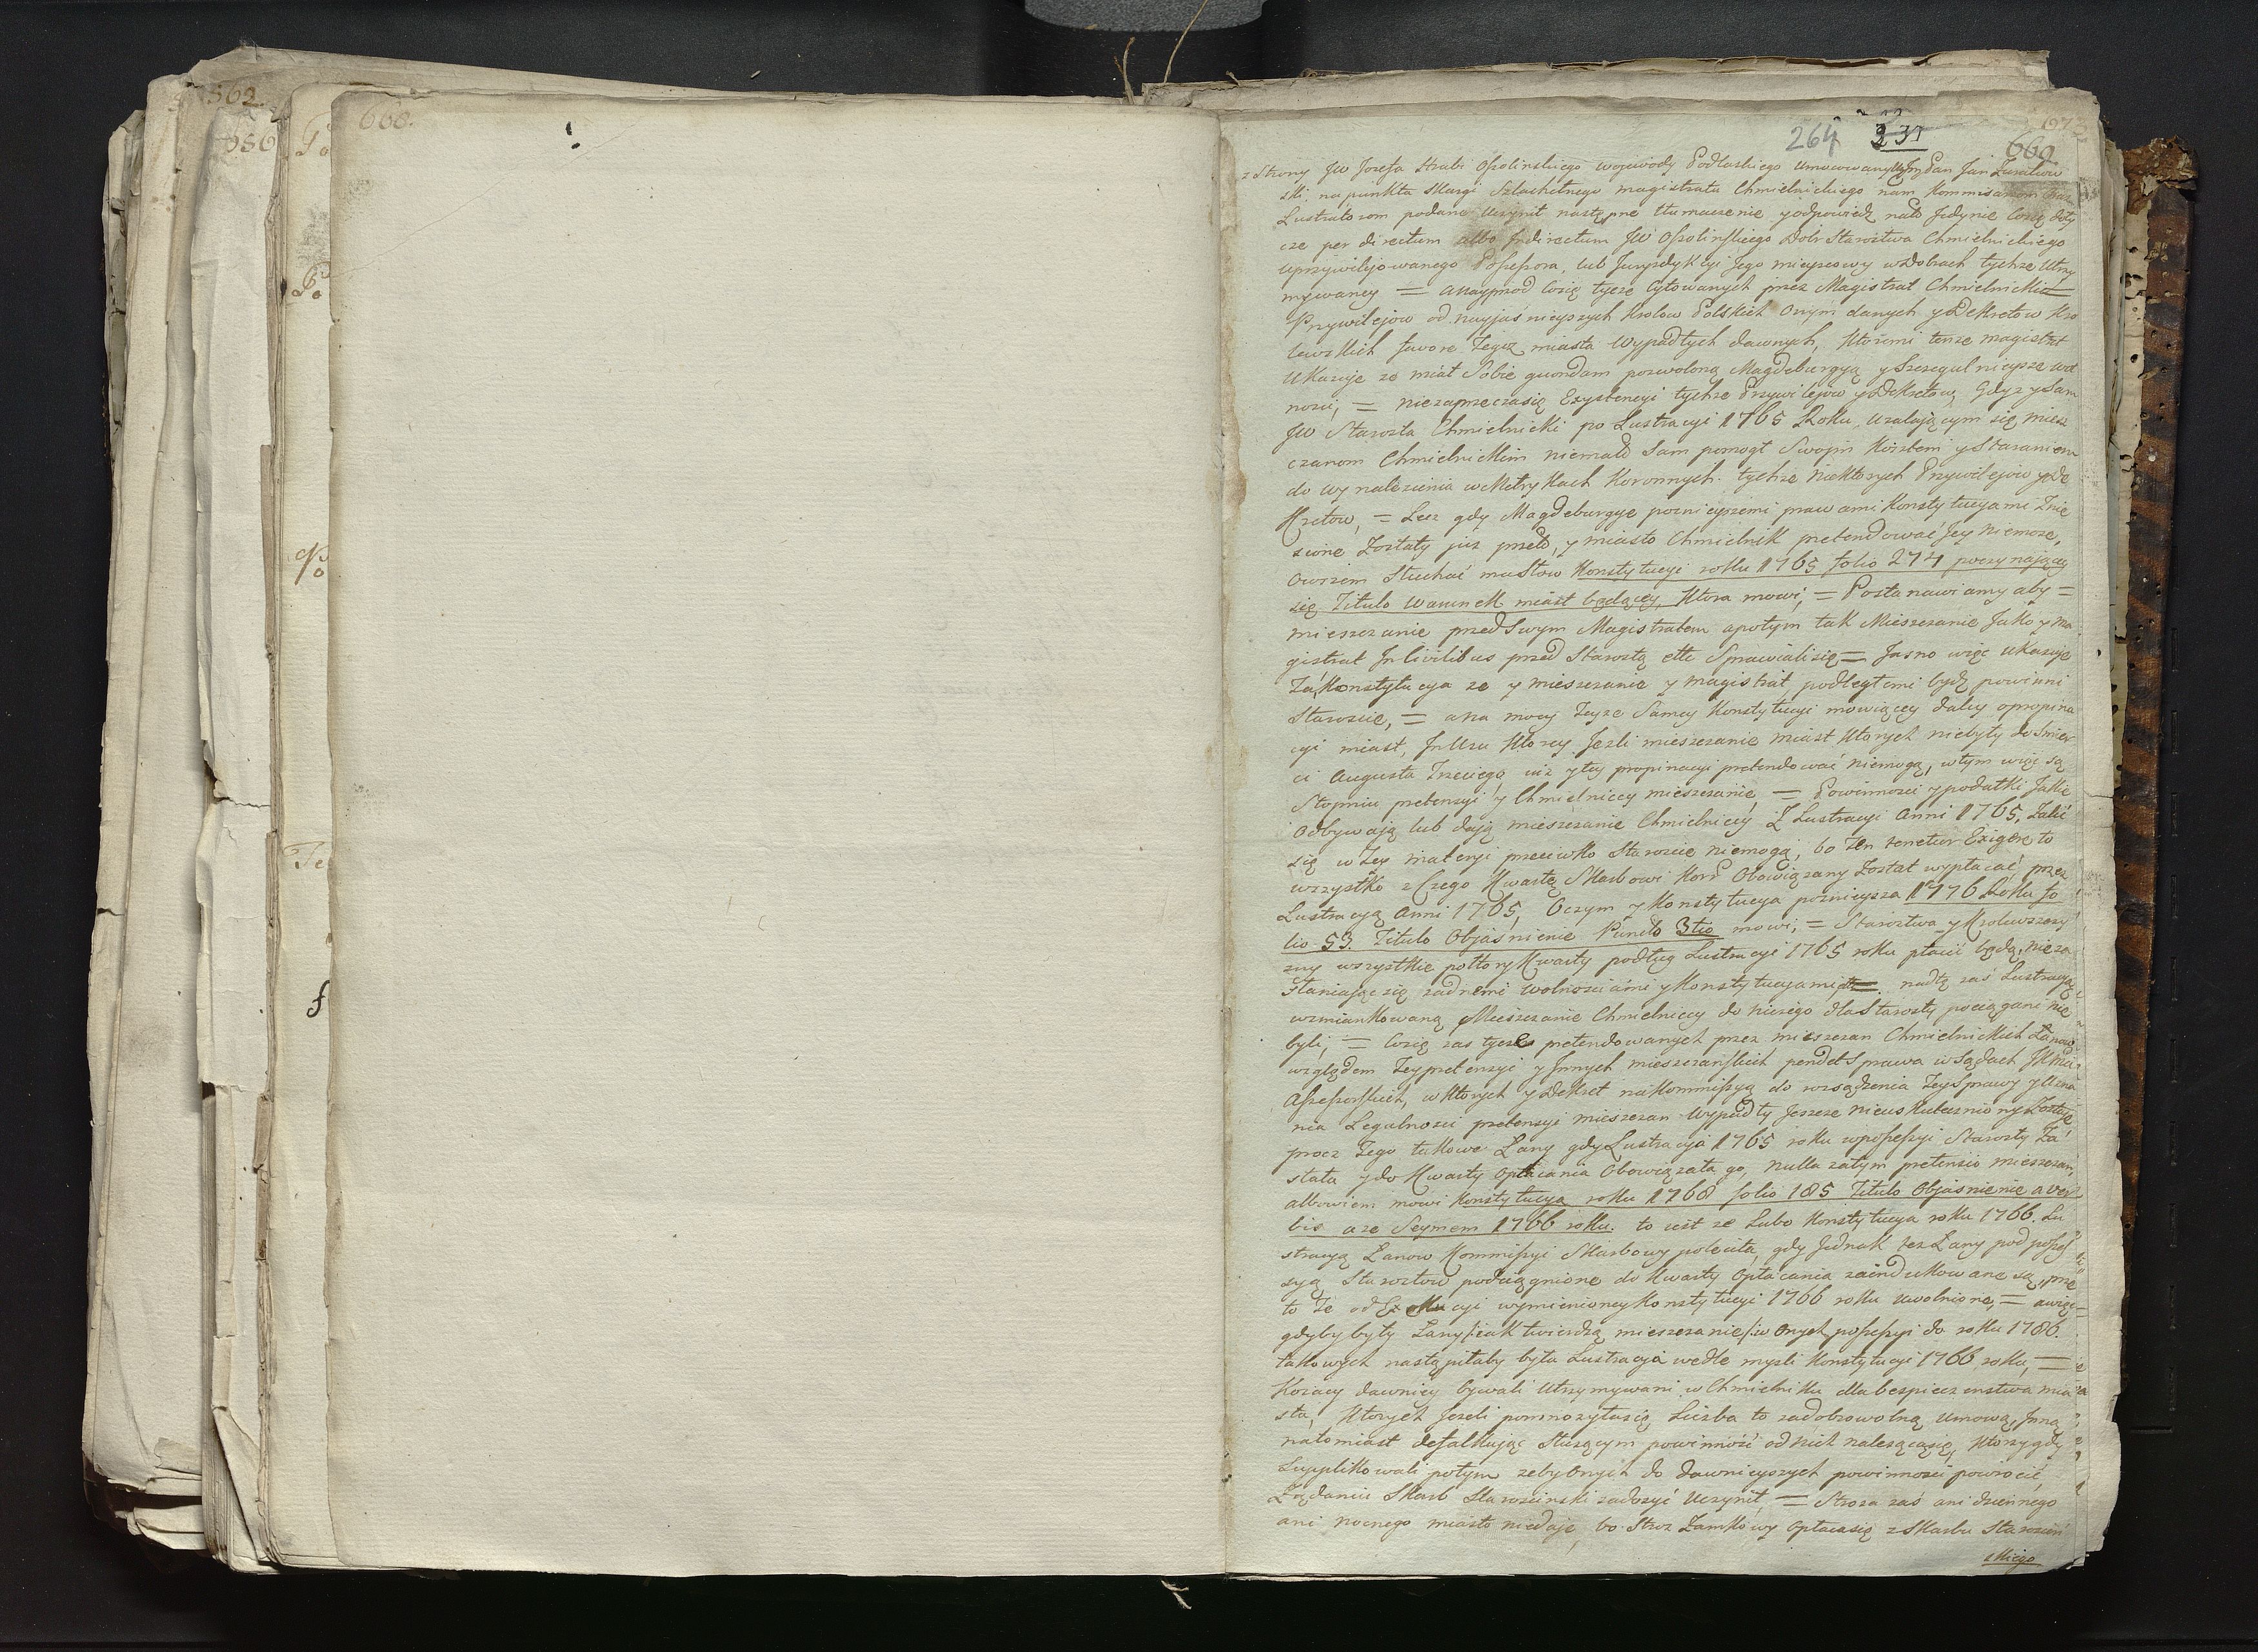 562.
660.
264
231
669
z Strony JW Jozefa Hrabi Ossolinskiego Wojewody Podlaskiego Umocowany Pan Jan
ski, na punkta Skargi Szlachetnego Magistratu Chmielnickiego nam Kommisarzom
Lustratorom podane Uczynił następne tłumaczenie y odpowiedz na to Jedynie Co się doty
cze per directum albo Indirectum JW Ossolinskiego Dobr Starostwa Chmielnickiego
uprzywilejowanego Possessora, lub Juryzdykcyi Jego mieyscowy w Dobrach tychze Utrzy
mywaney = a nayprzod Co się tycze Cytowanych przez Magistrat Chmielnicki =
Przywilejow od nayjasnieyszych Krolow Polskich Onym danych y Dekretow Kro
lewskich favore Tegoz miasta Wypadłych dawnych, Ktoremi tenze magistrat
Ukazuje ze miał Sobie quondam pozwoloną Magdeburgyą y Szczegulnieysze wol
nosci, = niezaprzecza się Exystencyi tychze Przywilejow y Dekretow, Gdyz y Sam
JW Starosta Chmielnicki po Lustracyi 1765 Roku, uzalającym się miesz
czanom Chmielnickim niemało Sam pomogł Swoim Kosztem y Staraniem
do wynalezienia w Metrykach Koronnych tychze niektorych Przywilejow y De
kretow, = Lecz gdy Magdeburgye poznieyszemi prawami Konstytucyami Znie
sione Zostały juz przeto, y miasto Chmielnik pretendować Jey niemoze,
owszem Słuchać ma Słow Konstytucyi roku 1765 folio 274 poczynający
się Titulo Warunek miast będącey, Ktora mowi, = Postanawiamy aby =
mieszczanie przed Swym Magistratem a potym tak Mieszczanie Jako y Ma
gistrat In Civilibus przed Starostą ettc Sprawiali się = Jasno więc ukazuje
Ta Konstytucya ze y mieszczanie y magistrat podległemi bydz powinni
Staroscie, = a na mocy Teyze Samey Konstytucyi mowiącey daley o propina
cyi miast, In Usu Ktorey Jezli mieszczanie miast Ktorych niebyły do Smier
ci Augusta Trzeciego, juz y tey propinacyi pretendować niemogą, w tym więc są
Stopniu pretensyi y Chmielniccy mieszczanie, = Powinnosci y podatki Jakie
odbywają lub dają mieszczanie Chmielniccy Z Lustracyi Anni 1765, Zalić
się w Tey materyi przeciwko Staroscie niemogą, bo Ten tenetur Exigere to
wszystko z Czego Kwartę Skarbowi Kor: Obowiązany Został wypłacać przez
Lustracyą Anni 1765, O czym y Konstytucya poznieysza 1776 Roku fo
lio 53 Titulo Objasnienie Puncto 3tio mowi, = Starostwa y Krolewszczy
zny wszystkie połtory Kwarty podług Lustracyi 1765 roku płacić będą, nieza
słaniając się zadnemi Wolnosciami y Konstytucyami = nad tę zaś Lustracyą
wzmiankowaną Mieszczanie Chmielniccy do niczego dla Starosty pociągani nie
byli, = Co się zas tycze pretendowanych przez mieszczan Chmielnickich Łanow
względem Tey pretensyi y Innych mieszczanskich pendet Sprawa w Sądach
Assessorskich, w Ktorych y Dekret na Kommissyą do rozsądzenia Tey Sprawy y Uzna
nia Legalnosci pretensyi mieszczan Wypadły Jeszcze nieuskuteczniony Zostaje,
procz Tego takowe Łany gdy Lustracyja 1765 roku w possessyi Starosty Za
stała y do Kwarty Opłacania Obowiązała go, nulla zatym pretensio mieszczan,
albowiem mowi Konstytucya roku 1768 folio 185 Titulo Objasnienie a ver
bis a ze Seymem 1766 roku. to iest ze Lubo Konstytucya roku 1766. Lu
stracyą Łanow Kommissyi Skarbowy poleciła, gdy Jednak tez Łany pod posses
syą Starostow podciągnione do Kwarty Opłacania zaindukowane są, prze
to Te od Exekucyi wymienioney Konstytucyi 1766 roku uwolnione, = a więc
gdyby były Łany /: iak twierdzą mieszczanie :/ w Onych possessyi do roku 1786.
takowych nastąpiłaby była Lustracyja wedle mysli Konstytucyi 1766 roku, =
Kozacy dawniey bywali Utrzymywani w Chmielniku dla bespieczenstwa mia
sta, Ktorych Jezeli pomnozyła się Liczba to za dobrowolną Umową, Inną
natomiast defalkując Słuzącym powinność od nich nalezącą się, Ktorzy gdy
Supplikowali potym zeby Onych do dawnieyszych powinnosci powrocić,
Ządaniu Skarb Starosciński zadosyć Uczynił, = Stroza zaś ani dziennego
ani nocnego miasto niedaje, bo Stroz Zamkowy Opłaca się z Skarbu Starościń
skiego